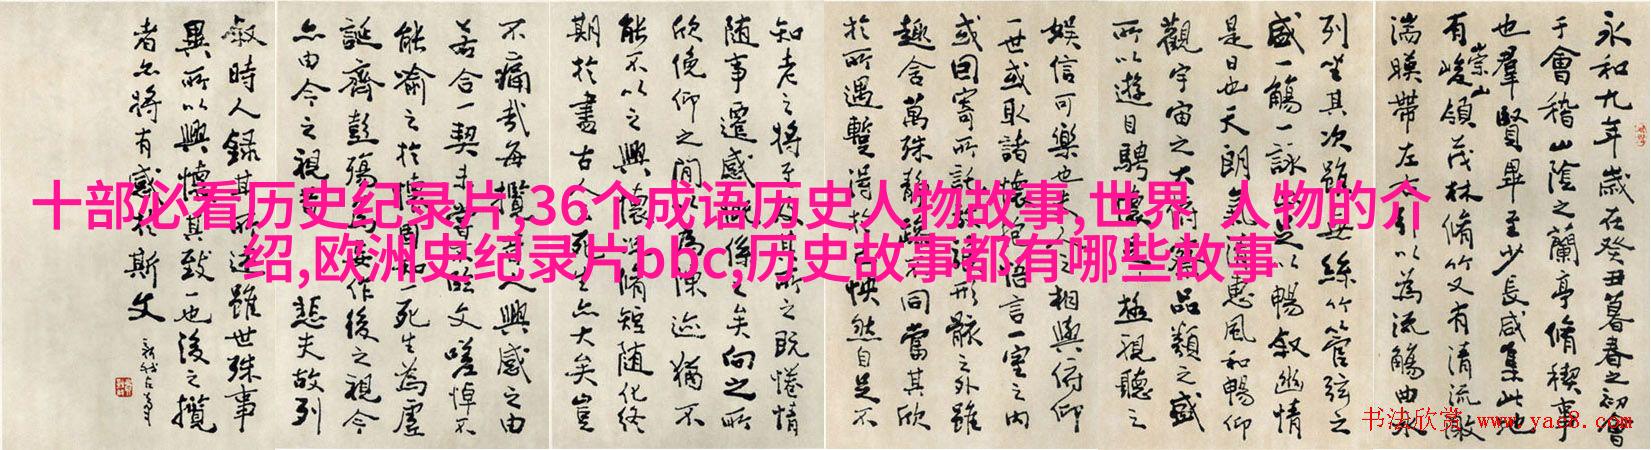 十部必看历史纪录片,36个成语历史人物故事,世界 人物的介
绍,欧洲史纪录片bbc,历史故事都有哪些故事
永和九年歲在癸丑暮春之初會
于會稽山陰之蘭亭脩稧事
也羣賢畢至少長咸集此地
有崇山峻領茂林脩竹又有清流激
湍暎帶左右引以為流觴曲水
列坐其次雖無絲竹管弦之
盛一觴一詠亦足以暢敘幽情
是日也天朗氣清惠風和暢仰
觀宇宙之大俯察品類之盛
所以遊目騁懷足以極視聽之
娛信可樂也夫人之相與俯仰
一世或取諸懷抱悟言一室之內
或因寄所託放浪形骸之外雖
趣舍萬殊靜躁不同當其欣
於所遇暫得於己怏然自足不
知老之將至及其所之既惓情
隨事遷感慨係之矣向之所
欣俛仰之間以為陳迹猶不
能不以之興懷況脩短隨化終
期於盡古人云死生亦大矣豈
不痛哉每攬昔人興感之由
若合一契未嘗不臨文嗟悼不
能喻之於懷固知一死生為虛
誕齊彭殤為妄作後之視今
亦由今之視昔悲夫故列
敘時人錄其所述雖世殊事
異所以興懷其致一也後之攬
者亦將有感於斯文
书法欣赏 www.yac8.com